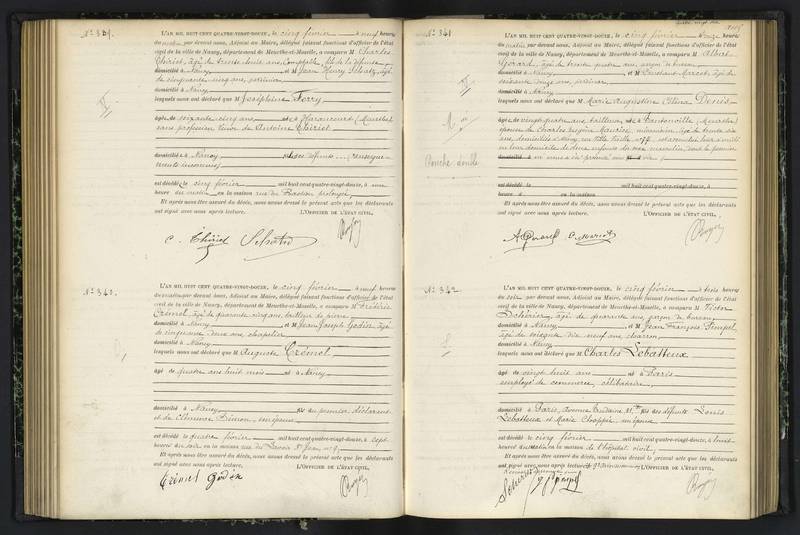 N° 339.
L'AN MIL HUIT CENT QUATRE-VINGT-DOUZE, le cinq février à neuf heures
du matin par devant nous, Adjoint au Maire, délégué faisant fonctions d'officier de l'état
civil de la ville de Nancy, département de Meurthe-et-Moselle, a comparu M Charles
Thiriet, âgé de trente huit ans, Comptable, fils de la défunte,
domicilié à Nancy et M Jean Henry Schatz, âgé
de cinquante cinq ans,
domicilié à Nancy
lesquels nous ont déclaré que M Joséphine Ferry,
âgée de soixante cinq ans née à Haraucourt (Meurthe)
sans profession, veuve de Antoine Thiriet
domicilié à Nancy des défunts renseigne-
ments inconnus,
est décédé le cinq février mil huit cent quatre-vingt-douze, à une
heure du matin en la maison rue du Bastion prolongée,
Et après nous être assuré du décès, nous avons dressé le présent acte que les déclarants
ont signé avec nous après lecture. L'OFFICIER DE L'ÉTAT CIVIL,
C. Thiriet Schatz
N° 340.
L'AN MIL HUIT CENT QUATRE-VINGT-DOUZE, le cinq février à neuf heures
du matin par devant nous, Adjoint au Maire, délégué faisant fonctions d'officier de l'état
civil de la ville de Nancy, département de Meurthe-et-Moselle, a comparu M Frédéric
Crémel, âgé de quarante cinq ans, tailleur de pierre
domicilié à Nancy et M Jean Joseph Godin, âgé
de cinquante deux ans, chapelier
domicilié à Nancy
lesquels nous ont déclaré que M Auguste Crémel
âgé de quatre ans huit mois né à Nancy,
domicilié à Nancy fils du premier déclarant
et de Clémence Simon, son épouse,
est décédé le quatre février mil huit cent quatre-vingt-douze, à sept
heures du soir en la maison rue du Lavoir St Jean, n° 9,
Et après nous être assuré du décès, nous avons dressé le présent acte que les déclarants
ont signé avec nous après lecture. L'OFFICIER DE L'ÉTAT CIVIL,
Crémel Godin
N° 341
L'AN MIL HUIT CENT QUATRE-VINGT-DOUZE, le cinq février à onze heures
du matin par devant nous, Adjoint au Maire, délégué faisant fonctions d'officier de l'état
civil de la ville de Nancy, département de Meurthe-et-Moselle, a comparu M Albert
Gérard, âgé de trente quatre ans, garçon de bureau
domicilié à Nancy et M Marcot, âgé de
soixante
domicilié à Nancy
lesquels nous ont déclaré que M Marie Augustine Célina Denis,
âgée de vingt quatre ans, tailleuse, née à Tantonville (Meurthe)
épouse de Charles Maurice, mécanicien, âgé de trente six
ans, domiciliés à Nancy
en leur domicile de deux enfants du sexe masculin, dont le premier
domicilié à
Couche double
est décédé le mil huit cent quatre-vingt-douze, à
heure en la maison
Et après nous être assuré du décès, nous avons dressé le présent acte que les déclarants
ont signé avec nous après lecture. L'OFFICIER DE L'ÉTAT CIVIL,
A Gérard Marcot
N° 342
L'AN MIL HUIT CENT QUATRE-VINGT-DOUZE, le cinq février à trois heures
du soir par devant nous, Adjoint au Maire, délégué faisant fonctions d'officier de l'état
civil de la ville de Nancy, département de Meurthe-et-Moselle, a comparu M Victor
âgé de quarante ans, garçon de bureau,
domicilié à Nancy et M Jean François Pimpel,
âgé de cinquante neuf ans, charron,
domicilié à Nancy
lesquels nous ont déclaré que M Charles Lebatteux
âgé de vingt huit ans né à Paris
employé de commerce, célibataire,
domicilié à Paris, avenue Trudaine fils des défunts Louis
Lebatteux et Marie son épouse,
est décédé le cinq février mil huit cent quatre-vingt-douze, à huit
heures du matin en la maison de l'hôpital civil,
Et après nous être assuré du décès, nous avons dressé le présent acte que les déclarants
ont signé avec nous après lecture L'OFFICIER DE L'ÉTAT CIVIL,